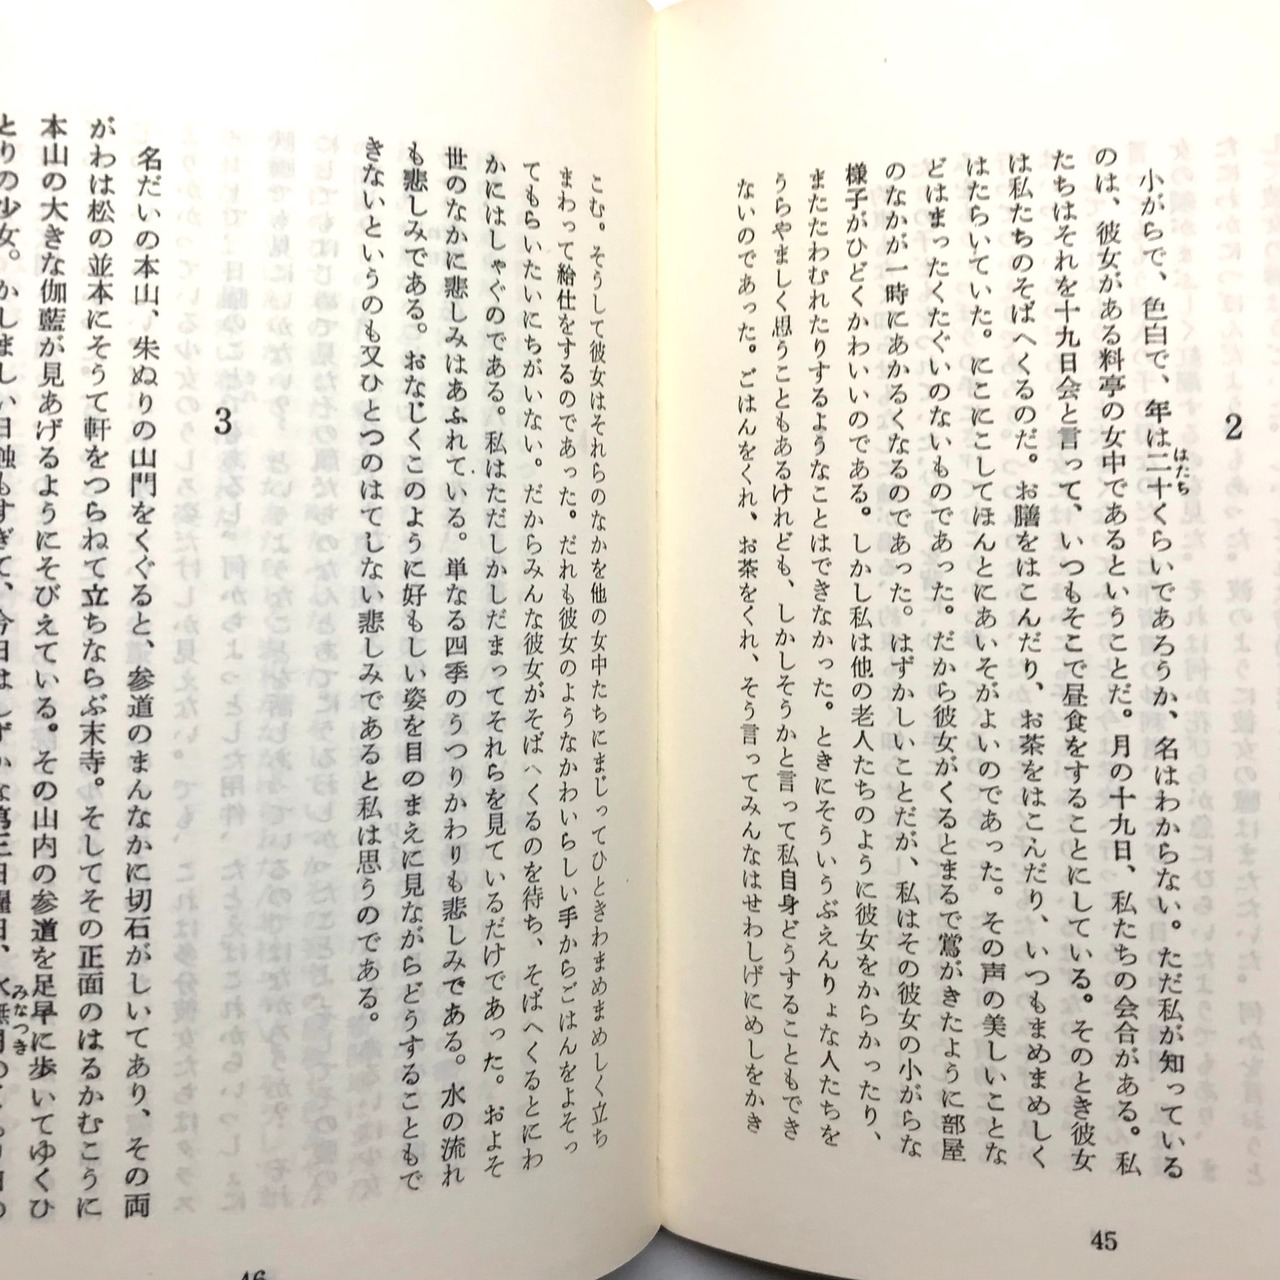 2
小がらで、色白で、年は二十くらいであろうか、名はわからない。ただ私が知っている
はたち
のは、彼女がある料亭の女中であるということだ。月の十九日、私たちの会合がある。私
たちはそれを十九日会と言って、いつもそこで昼食をすることにしている。そのとき彼女
は私たちのそばへくるのだ。お膳をはこんだり、お茶をはこんだり、いつもまめまめしく
はたらいていた。にこにこしてほんとにあいそがよいのであった。その声の美しいことな
どはまったくたぐいのないものであった。だから彼女がくるとまるで鶯がきたように部屋
のなかが一時にあかるくなるのであった。はずかしいことだが、私はその彼女の小がらな
様子がひどくかわいいのである。しかし私は他の老人たちのように彼女をからかったり、
またたわむれたりするようなことはできなかった。ときにそういうぶえんりょな人たちを
うらやましく思うこともあるけれども、しかしそうかと言って私自身どうすることもでき
ないのであった。ごはんをくれ、お茶をくれ、そう言ってみんなはせわしげにめしをかき
45
こむ。そうして彼女はそれらのなかを他の女中たちにまじってひときわまめまめしく立ち
まわって給仕をするのであった。だれも彼女のようなかわいらしい手からごはんをよそっ
てもらいたいにちがいない。だからみんな彼女がそばへくるのを待ち、そばへくるとにわ
かにはしゃぐのである。私はただしかしだまってそれらを見ているだけであった。およそ
世のなかに悲しみはあふれている。単なる四季のうつりかわりも悲しみである。水の流れ
も悲しみである。おなじくこのように好もしい姿を目のまえに見ながらどうすることもで
きないというのも又ひとつのはてしない悲しみであると私は思うのである。
3
名だいの本山、朱ぬりの山門をくぐると、参道のまんなかに切石がしいてあり、その両
がわは松の並本にそうて軒をつらねて立ちならぶ末寺。そしてその正面のはるかむこうに
本山の大きな伽藍が見あげるようにそびえている。その山内の参道を足早に歩いてゆくひ
とりの少女。かしましい日蝕もすぎて、今日はしずかな第三日曜日、水無月の
みなつき
46